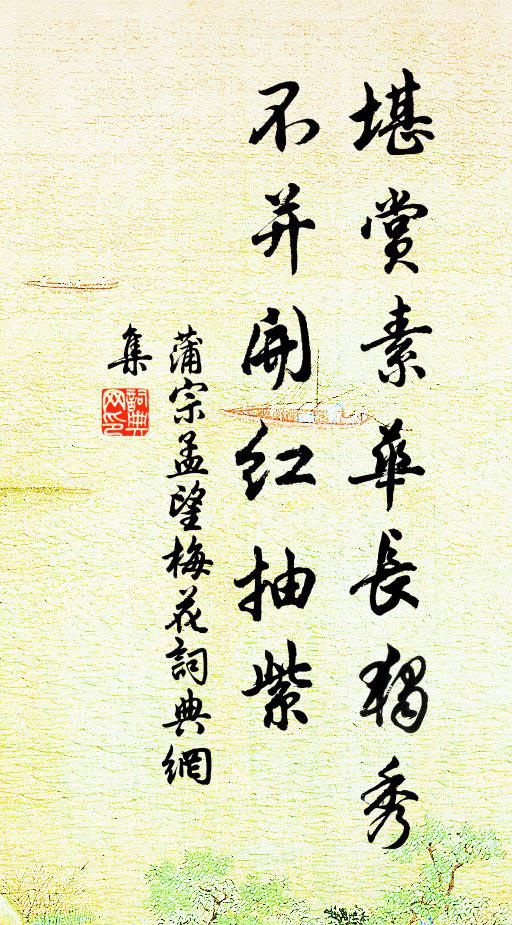 堪賞素華長獨秀
不并開紅抽紫
蒲宗孟望梅花詞典網
集
詞典網印